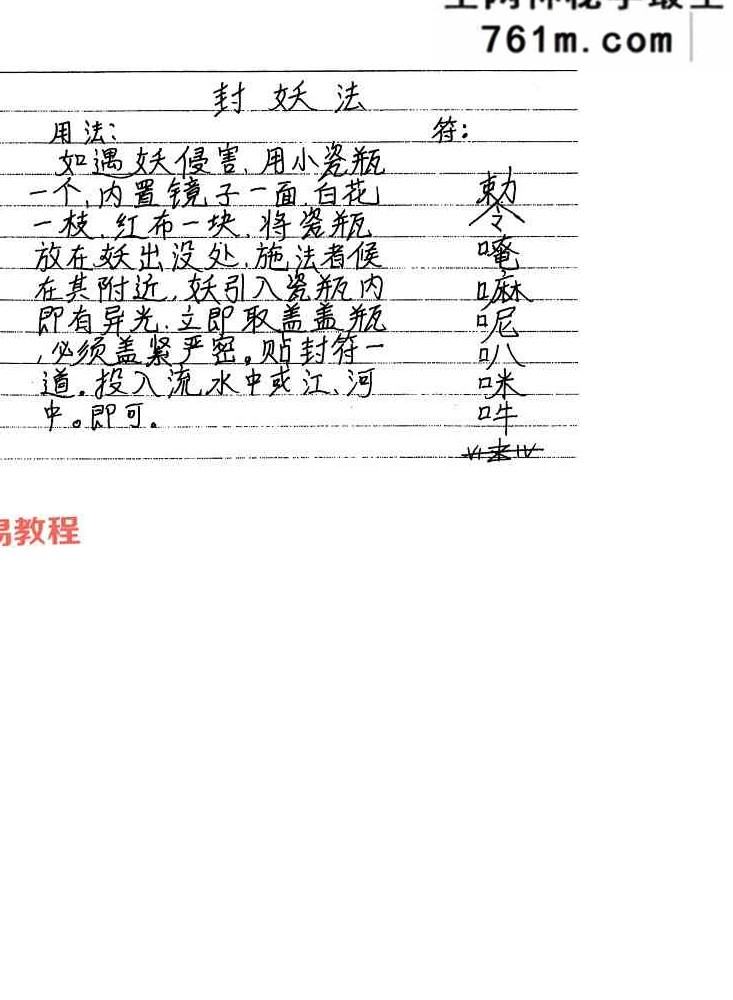 761m.com
封妖法
用法：
符：
如遇妖侵害，用小瓷瓶
一个，内置镜子一面，白花
一枝，红布一块，将瓷瓶
放在妖出没处，施法者候
在其附近，妖引入瓷瓶内
即有异光，立即取盖盖瓶
，必须盖紧严密。贴封符一
道。投入流水中或江、河
中。即可。
勅
令
唵
嘛
呢
叭
咪
吽
易教程